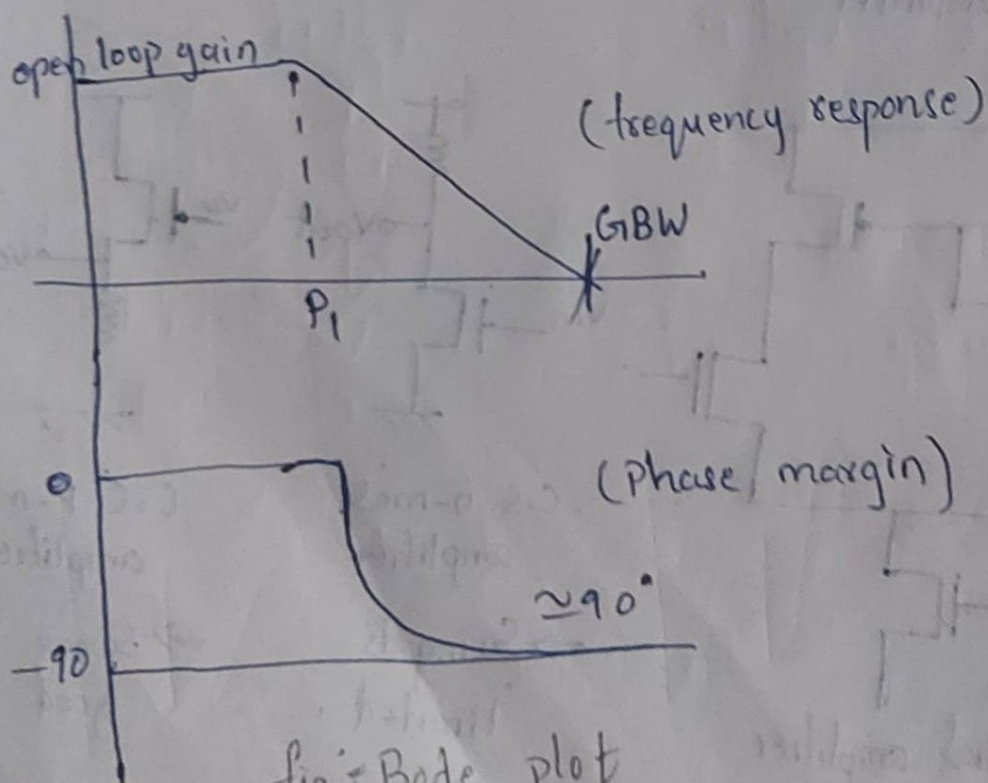 open loop gain
(frequency response)
GBW
P1
0
(Phase / margin)
≃90°
-90
fig:- Bode plot